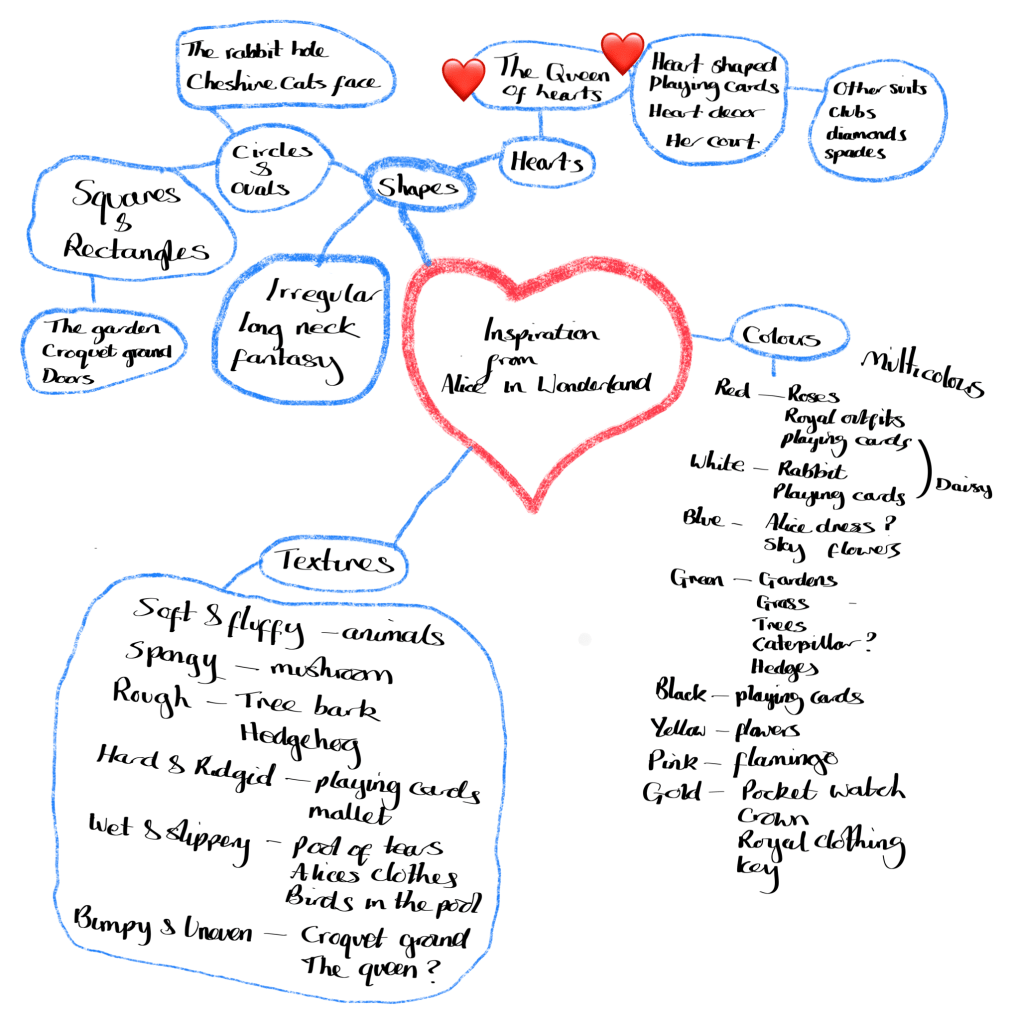 The rabbit hole
Cheshire Cats face
The Queen
Of hearts
Heart shaped
Playing cards
Heart decor
Her court
Other suits
clubs
diamonds
spades
Circles
&
ovals
Shapes
Hearts
Squares
&
Rectangles
The garden
Croquet ground
Doors
Irregular
long neck
fantasy
Inspiration
from
Alice in Wonderland
Colours
Multicolours
Red — Roses
Royal outfits
playing cards
White — Rabbit
Playing cards
Daisy
Blue – Alice dress ?
Sky flowers
Green — Gardens
Grass –
Trees
Caterpillar ?
Hedges
Black — playing cards
Yellow — flowers
Pink — flamingo
Gold — Pocket watch
Crown
Royal clothing
key
Textures
Soft & fluffy — animals
Spongy — mushroom
Rough — Tree bark
Hedgehog
Hard & Ridgid — playing cards
mallet
Wet & slippery — Pool of tears
Alices clothes
Birds in the pool
Bumpy & Uneven — Croquet ground
The queen ?